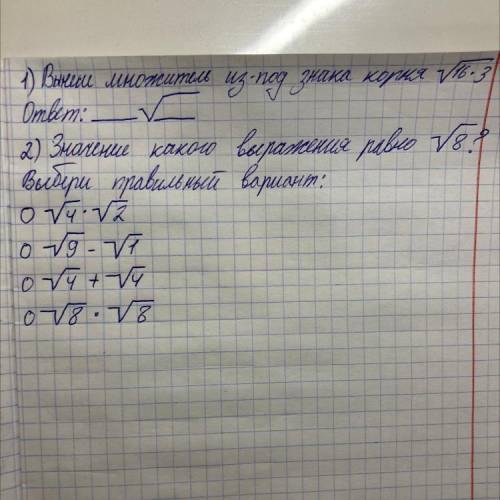 1) Вынеси множитель из-под знака корня √16·3
Ответ: ___√___
2) Значение какого выражения равно √8?
Выбери правильный вариант:
○ √4 · √2
○ √9 - √1
○ √4 + √4
○ √8 · √8